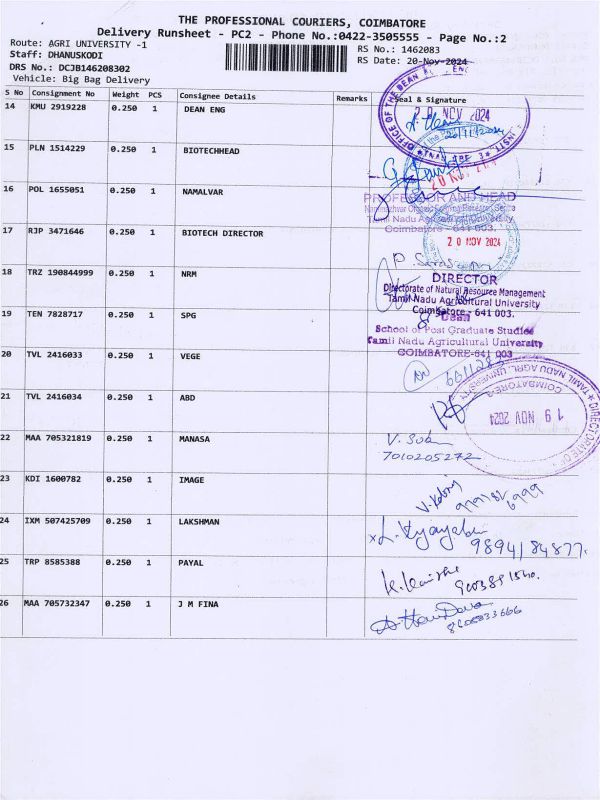 THE PROFESSIONAL COURIERS, COIMBATORE
Delivery Runsheet - PC2 - Phone No.:0422-3505555 - Page No.:2
Route: AGRI UNIVERSITY -1
RS No.: 1462083
Staff: DHANUSKODI
RS Date: 20-Nov-2024
DRS No.: DCJB146208302
Vehicle: Big Bag Delivery
S No Consignment No Weight PCS Consignee Details Remarks Seal & Signature
14 KMU 2919228 0.250 1 DEAN ENG
OFFICE OF THE DEAN
20 NOV 2024
15 PLN 1514229 0.250 1 BIOTECHHEAD
16 POL 1655051 0.250 1 NAMALVAR
PROFESSOR AND HEAD
Tamil Nadu Agricultural University
Coimbatore - 641 003.
17 RJP 3471646 0.250 1 BIOTECH DIRECTOR
20 NOV 2024
18 TRZ 190844999 0.250 1 NRM
DIRECTOR
Directorate of Natural Resource Management
Tamil Nadu Agricultural University
Coimbatore - 641 003.
19 TEN 7828717 0.250 1 SPG
Dean
School of Post Graduate Studies
Tamil Nadu Agricultural University
COIMBATORE-641 003
20 TVL 2416033 0.250 1 VEGE
21 TVL 2416034 0.250 1 ABD
TAMIL NADU AGRL. UNIVERSITY
COIMBATORE-3
19 NOV 2024
22 MAA 705321819 0.250 1 MANASA
7010205272
23 KDI 1600782 0.250 1 IMAGE
24 IXM 507425709 0.250 1 LAKSHMAN
9894184877.
25 TRP 8585388 0.250 1 PAYAL
26 MAA 705732347 0.250 1 J M FINA